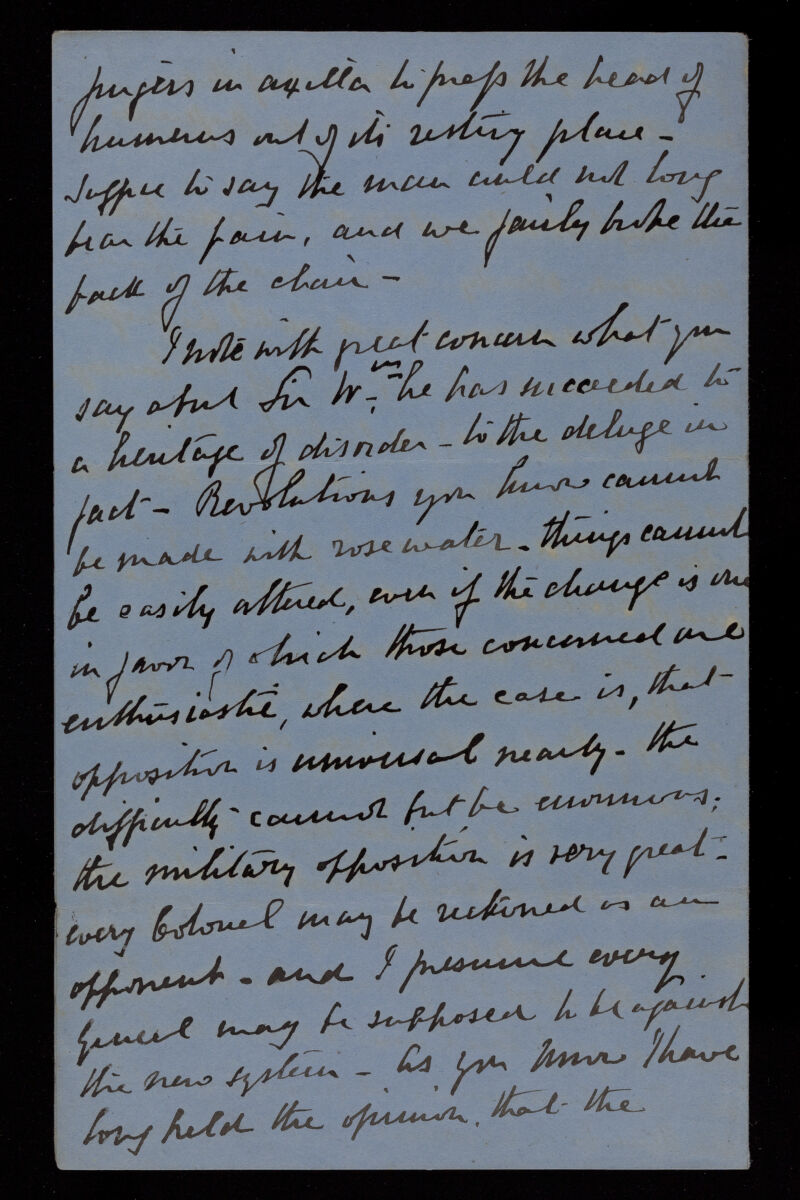 fingers in axilla to press the head of
humerus out of its resting place -
Suffice to say the man could not long
bear the pain, and we fairly broke the
back of the chair -
I note with great concern what you
say about Sir Wm. he has succeeded to
a heritage of disorder - to the deluge in
fact - Revolutions you know cannot
be made with rosewater - things cannot
be easily altered, even if the change is one
in favor of which those concerned are
enthusiastic, where the case is, that
opposition is universal nearly - the
difficulty cannot but be enormous;
the military opposition is very great -
every Colonel may be reckoned as an
opponent - and I presume every
General may be supposed to be against
the new system - As you know I have
long held the opinion, that the